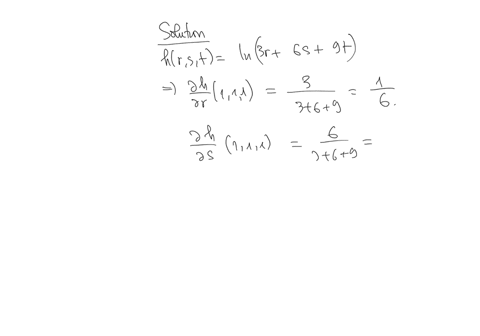 Solution
h(r,s,t) = ln(3r + 6s + 9t)
=) ∂h/∂r (1,1,1) = 3/(3+6+9) = 1/6.
∂h/∂s (1,1,1) = 6/(3+6+9) =